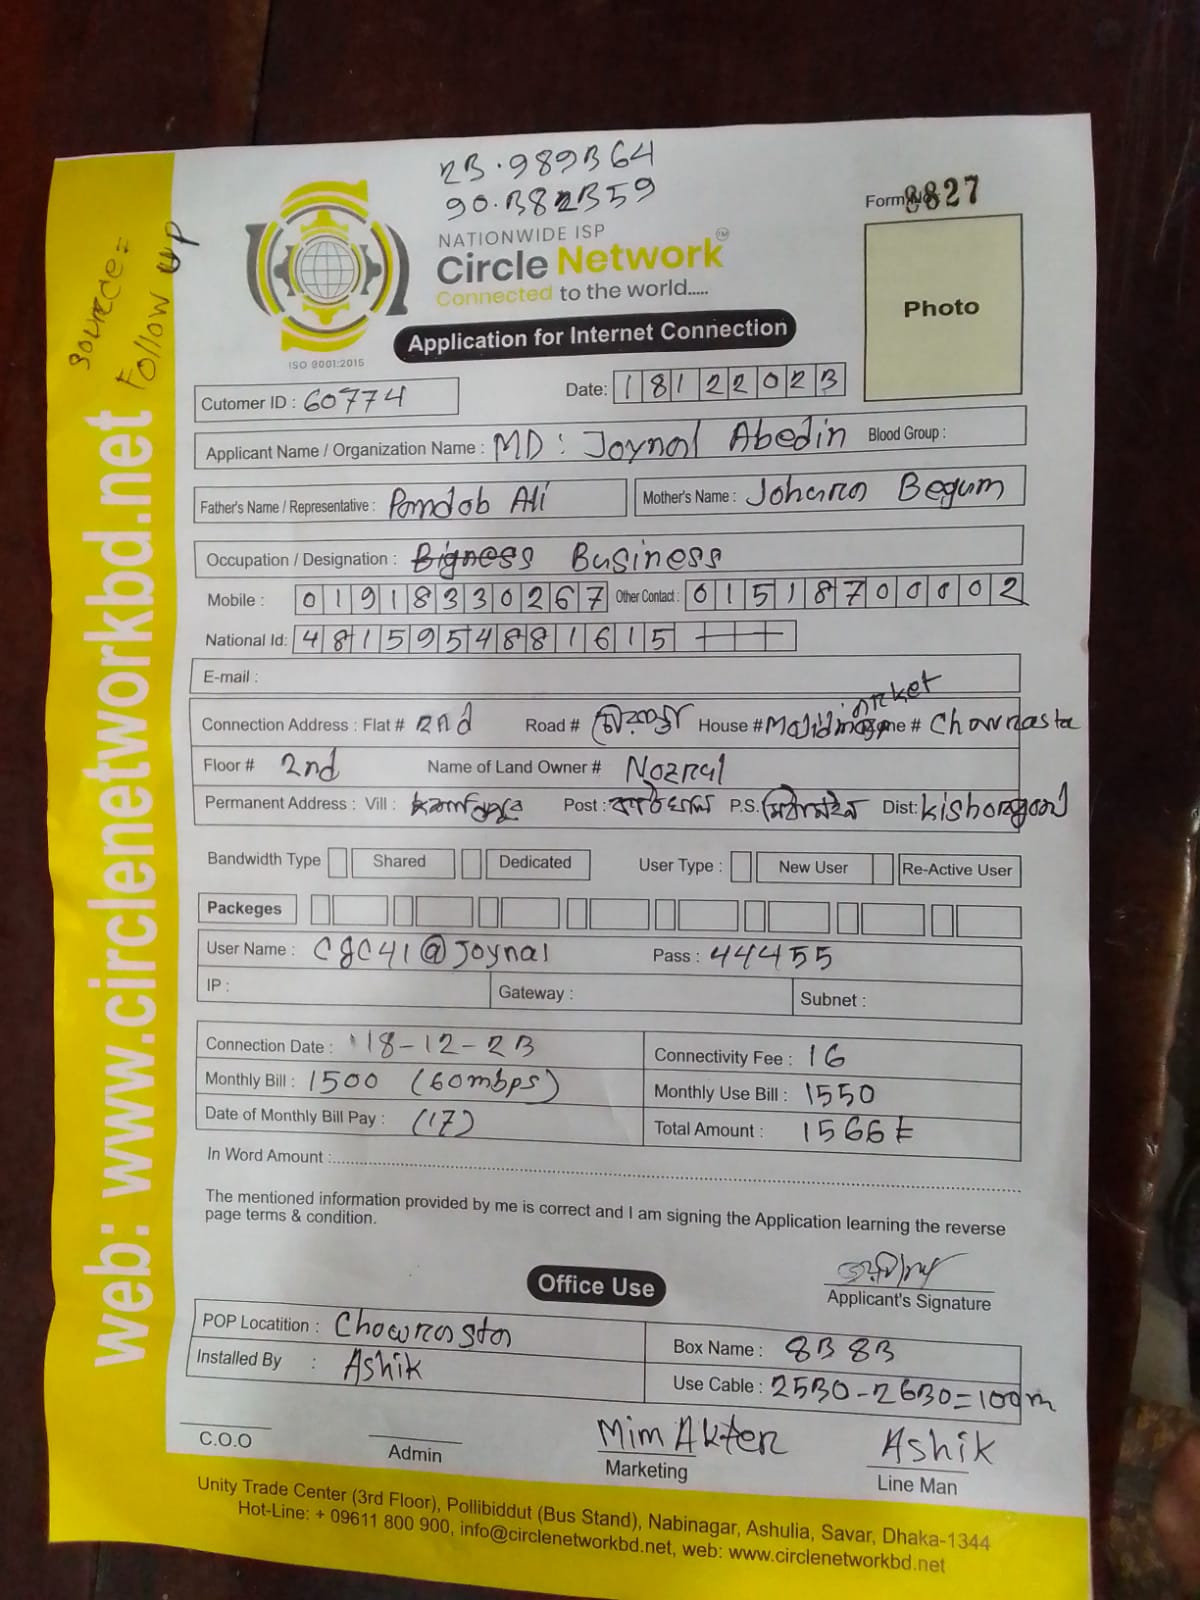 23.989364
90.382359
Source=
Follow up
NATIONWIDE ISP
Circle Network
TM
Connected to the world.....
ISO 9001:2015
Form No. 8827
Photo
Application for Internet Connection
Cutomer ID : 60774
Date: 18122023
Applicant Name / Organization Name : MD: Joynal Abedin Blood Group :
Father's Name / Representative : Pandob Ali Mother's Name : Johura Begum
Occupation / Designation : Bigness Business
Mobile : 01918330267 Other Contact : 01518700002
National Id: 4815954881615
E-mail :
Connection Address : Flat # 2nd Road # House # Majid market Zone # Chowrasta
Floor # 2nd Name of Land Owner # Nozrul
Permanent Address : Vill : Post : P.S. Dist: Kishoregonj
Bandwidth Type Shared Dedicated User Type : New User Re-Active User
Packeges
User Name : CGC41@Joynal Pass : 44455
IP : Gateway : Subnet :
Connection Date : 18-12-23 Connectivity Fee : 16
Monthly Bill : 1500 (60mbps) Monthly Use Bill : 1550
Date of Monthly Bill Pay : (17) Total Amount : 1566 ৳
In Word Amount :
The mentioned information provided by me is correct and I am signing the Application learning the reverse
page terms & condition.
Applicant's Signature
Office Use
POP Locatition : Chowrasta Box Name : 8383
Installed By : Ashik Use Cable : 2530-2630=100m
C.O.O Admin Mim Akter Ashik
Marketing Line Man
Unity Trade Center (3rd Floor), Pollibiddut (Bus Stand), Nabinagar, Ashulia, Savar, Dhaka-1344
Hot-Line: + 09611 800 900, info@circlenetworkbd.net, web: www.circlenetworkbd.net
web: www.circlenetworkbd.net